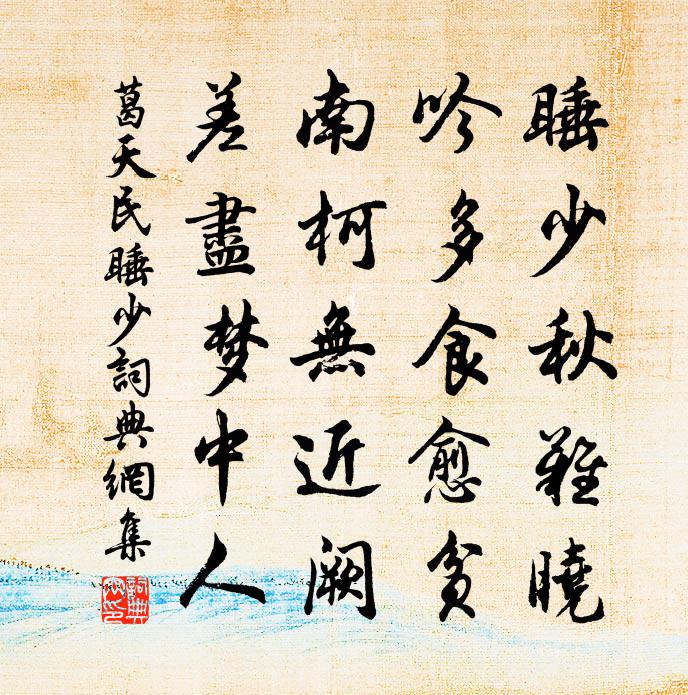 睡少秋難曉
吟多食愈貧
南柯無近闕
差盡梦中人
葛天民睡少詞典網集